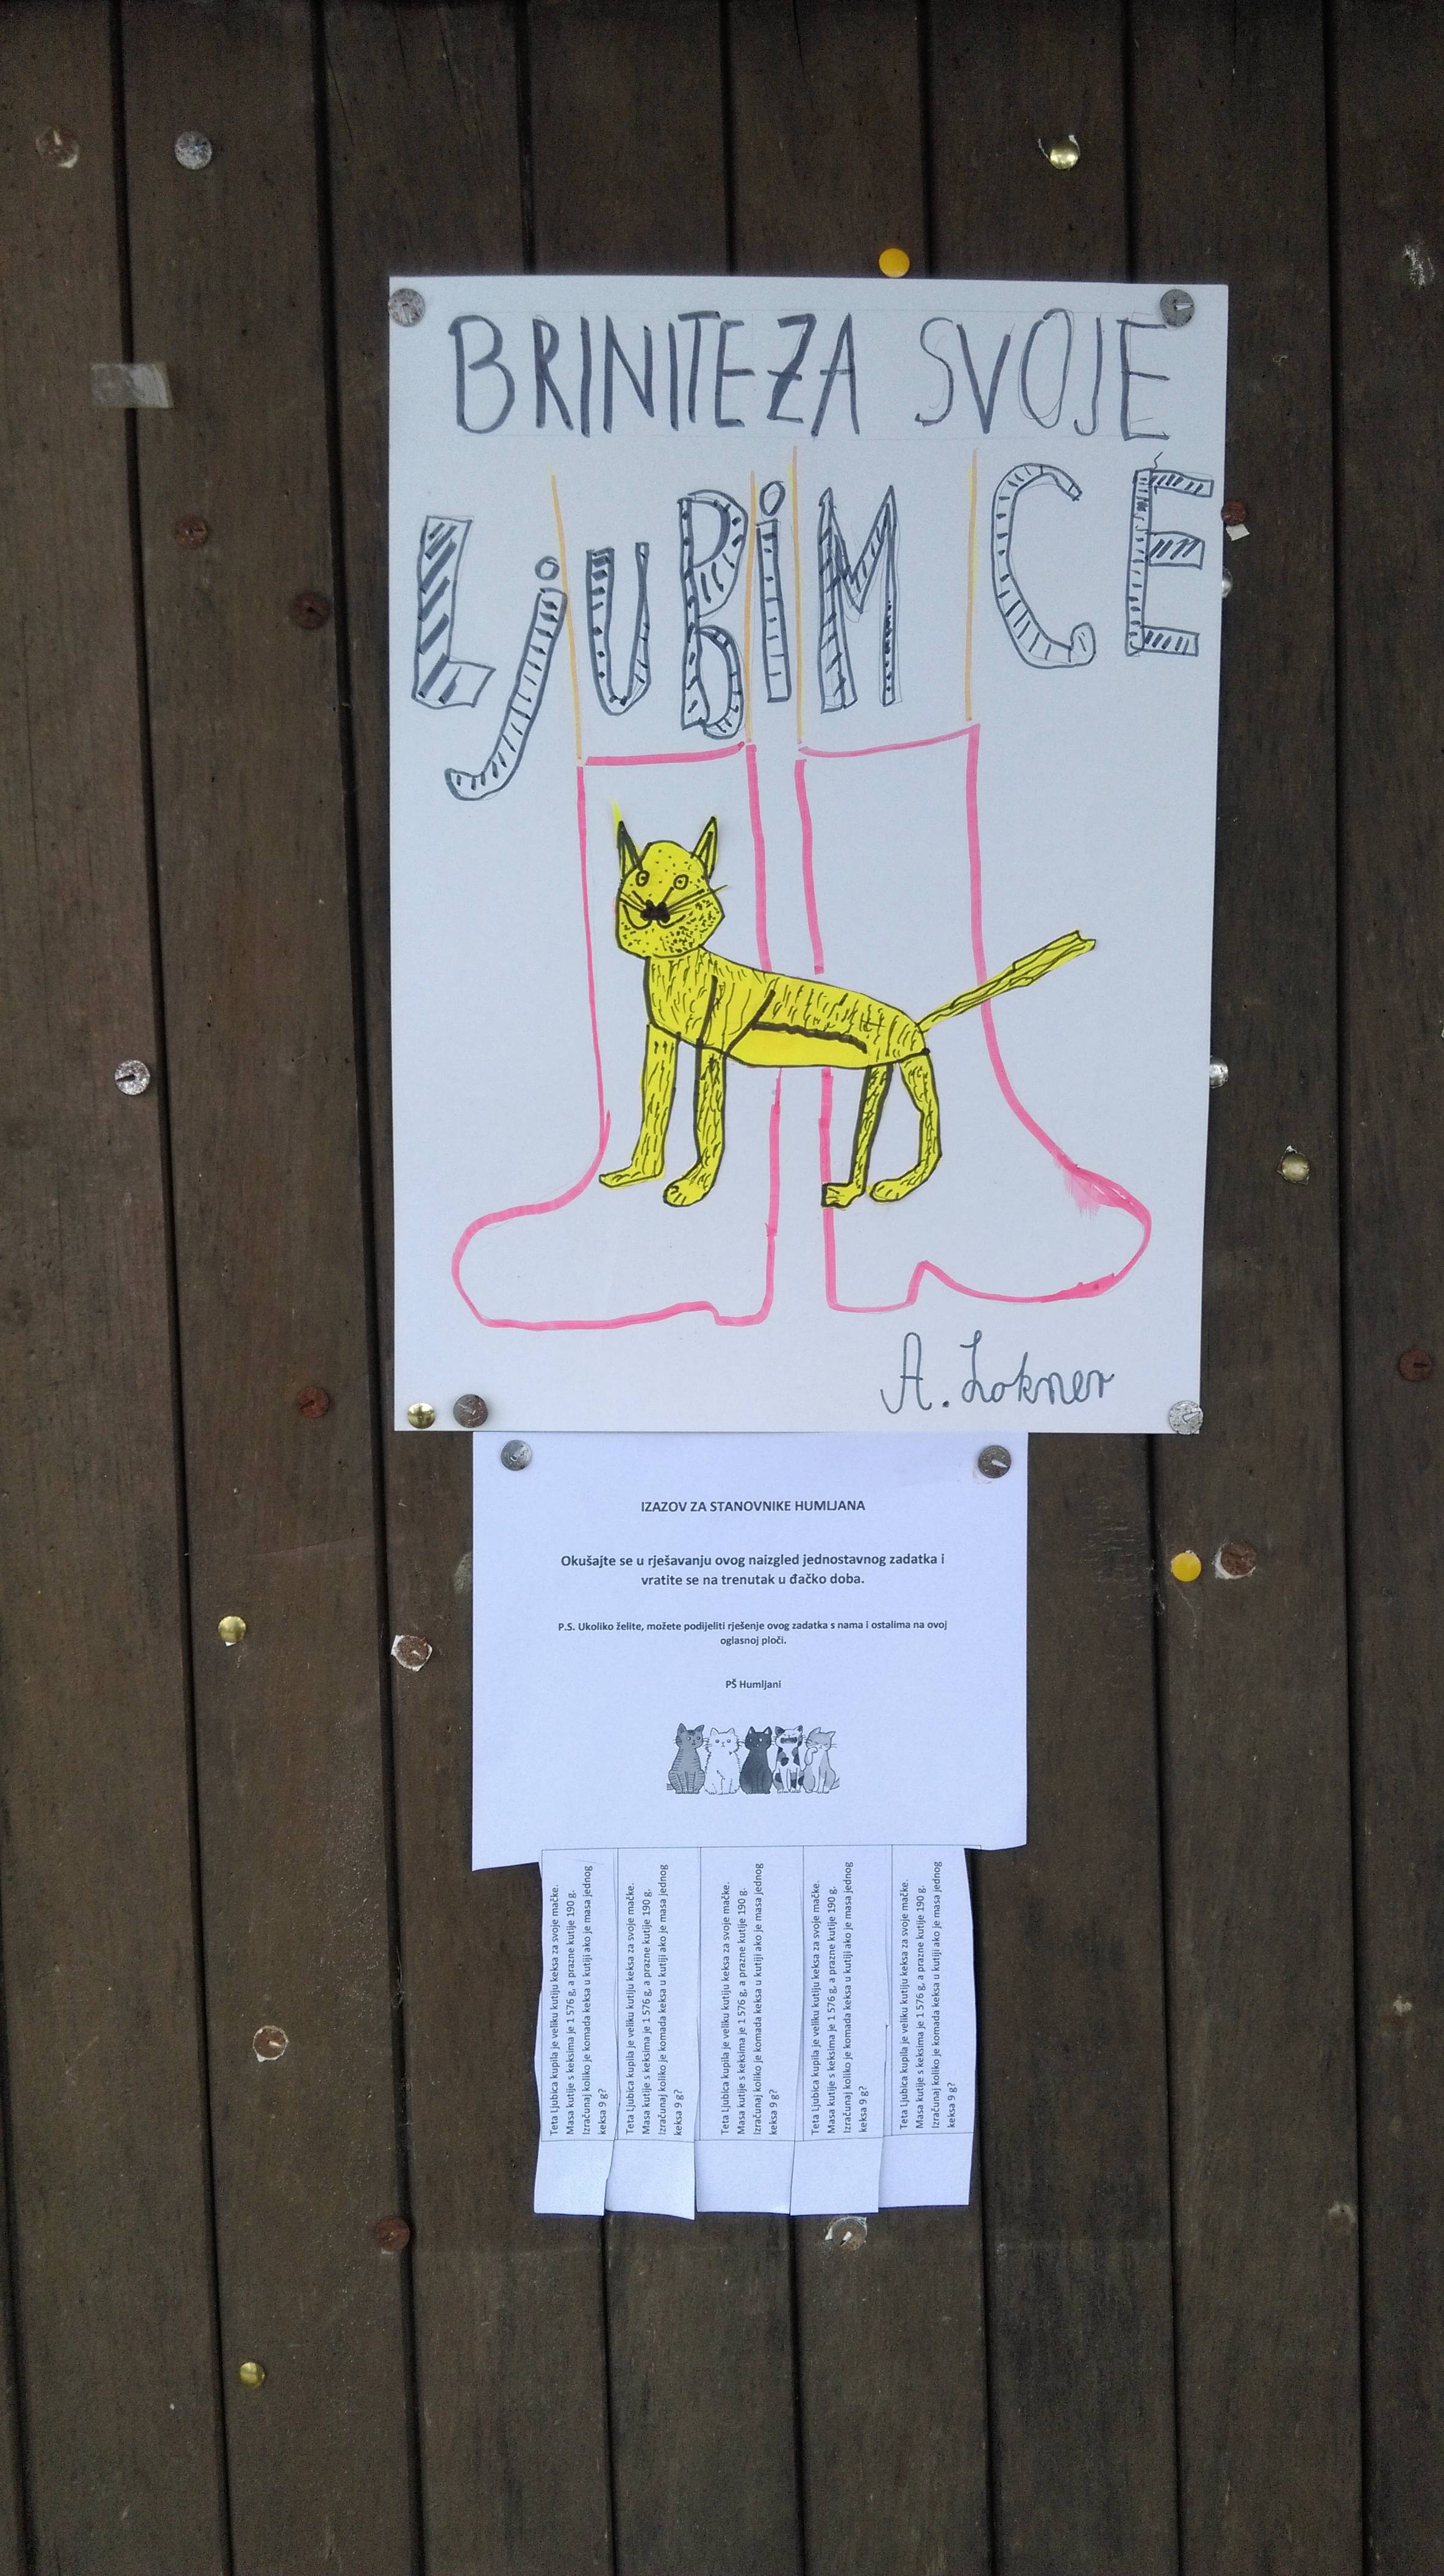 BRINITE ZA SVOJE
LjUBiMCE
A. Lokner
IZAZOV ZA STANOVNIKE HUMLJANA
Okušajte se u rješavanju ovog naizgled jednostavnog zadatka i
vratite se na trenutak u đačko doba.
P.S. Ukoliko želite, možete podijeliti rješenje ovog zadatka s nama i ostalima na ovoj
oglasnoj ploči.
PŠ Humljani
Teta Ljubica kupila je veliku kutiju keksa za svoje mačke.
Masa kutije s keksima je 1 576 g, a prazne kutije 190 g.
Izračunaj koliko je komada keksa u kutiji ako je masa jednog
keksa 9 g?
Teta Ljubica kupila je veliku kutiju keksa za svoje mačke.
Masa kutije s keksima je 1 576 g, a prazne kutije 190 g.
Izračunaj koliko je komada keksa u kutiji ako je masa jednog
keksa 9 g?
Teta Ljubica kupila je veliku kutiju keksa za svoje mačke.
Masa kutije s keksima je 1 576 g, a prazne kutije 190 g.
Izračunaj koliko je komada keksa u kutiji ako je masa jednog
keksa 9 g?
Teta Ljubica kupila je veliku kutiju keksa za svoje mačke.
Masa kutije s keksima je 1 576 g, a prazne kutije 190 g.
Izračunaj koliko je komada keksa u kutiji ako je masa jednog
keksa 9 g?
Teta Ljubica kupila je veliku kutiju keksa za svoje mačke.
Masa kutije s keksima je 1 576 g, a prazne kutije 190 g.
Izračunaj koliko je komada keksa u kutiji ako je masa jednog
keksa 9 g?